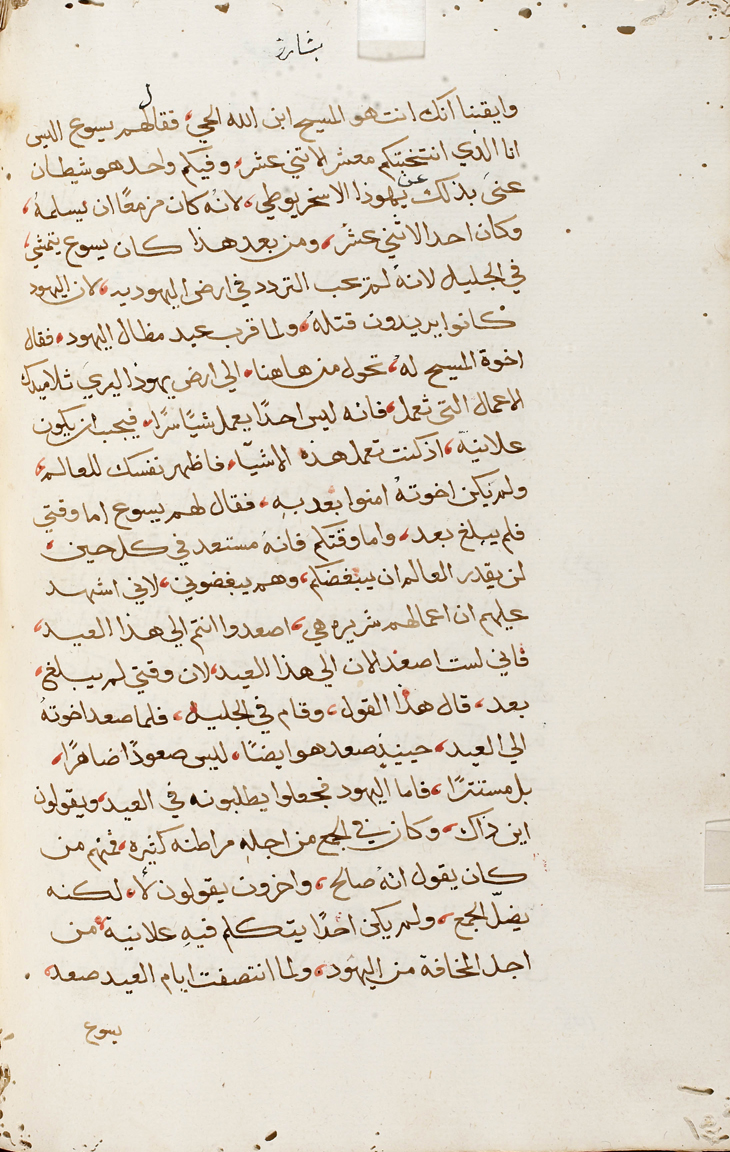 بشارة
وايقننا انك انت هو المسيح ابن الله الحي، فقال لهم يسوع اليس
انا الذي انتخبتكم معشر الاثني عشر، وفيكم واحد هو شيطان
عنى بذلك عن يهوذا الاسخريوطي، لانه كان مزمعًا ان يسلمه،
وكان احد الاثني عشر، ومن بعد هذا كان يسوع يتمشي،
في الجليل لانه لم يحب التردد في ارض اليهوديه، لان اليهود
كانوا يريدون قتله، ولما قرب عيد مظال اليهود، فقال
اخوة المسيح له، تحول من هاهنا، الي ارض يهوذا ليري تلاميدك
الاعمال التي تعمل، فانه ليس احدًا يعمل شيًا سرًا، فيجب ان يكون
علانية، اذ كنت تعمل هذه الاشيا، فاظهر نفسك للعالم،
ولم يكن اخوته امنوا بعد به، فقال لهم يسوع اما وقتي
فلم يبلغ بعد، واما وقتكم فانه مستعد في كل حين،
لن يقدر العالم ان يبغضكم، وهم يبغضوني، لاني اشهد
عليهم ان اعمالهم شريره هي، اصعدوا انتم الي هذا العيد،
فاني لست اصعد الان الي هذا العيد، لان وقتي لم يبلغ،
بعد، قال هذا القول، وقام في الجليل، فلما صعد اخوته
الي العيد، حينيذ صعد هو ايضًا، ليس صعودًا ضاهرًا،
بل مستترًا، فاما اليهود فجعلوا يطلبونه في العيد، ويقولون
اين ذاك، وكان في الجمع من اجله مراطنه كثيره، فمنهم من
كان يقول انه صالح، واخرون يقولون لا، لكنه
يضل الجمع، ولم يكن احدًا يتكلم فيه علانية، من
اجل المخافة من اليهود، ولما انتصفت ايام العيد صعد،
يسوع